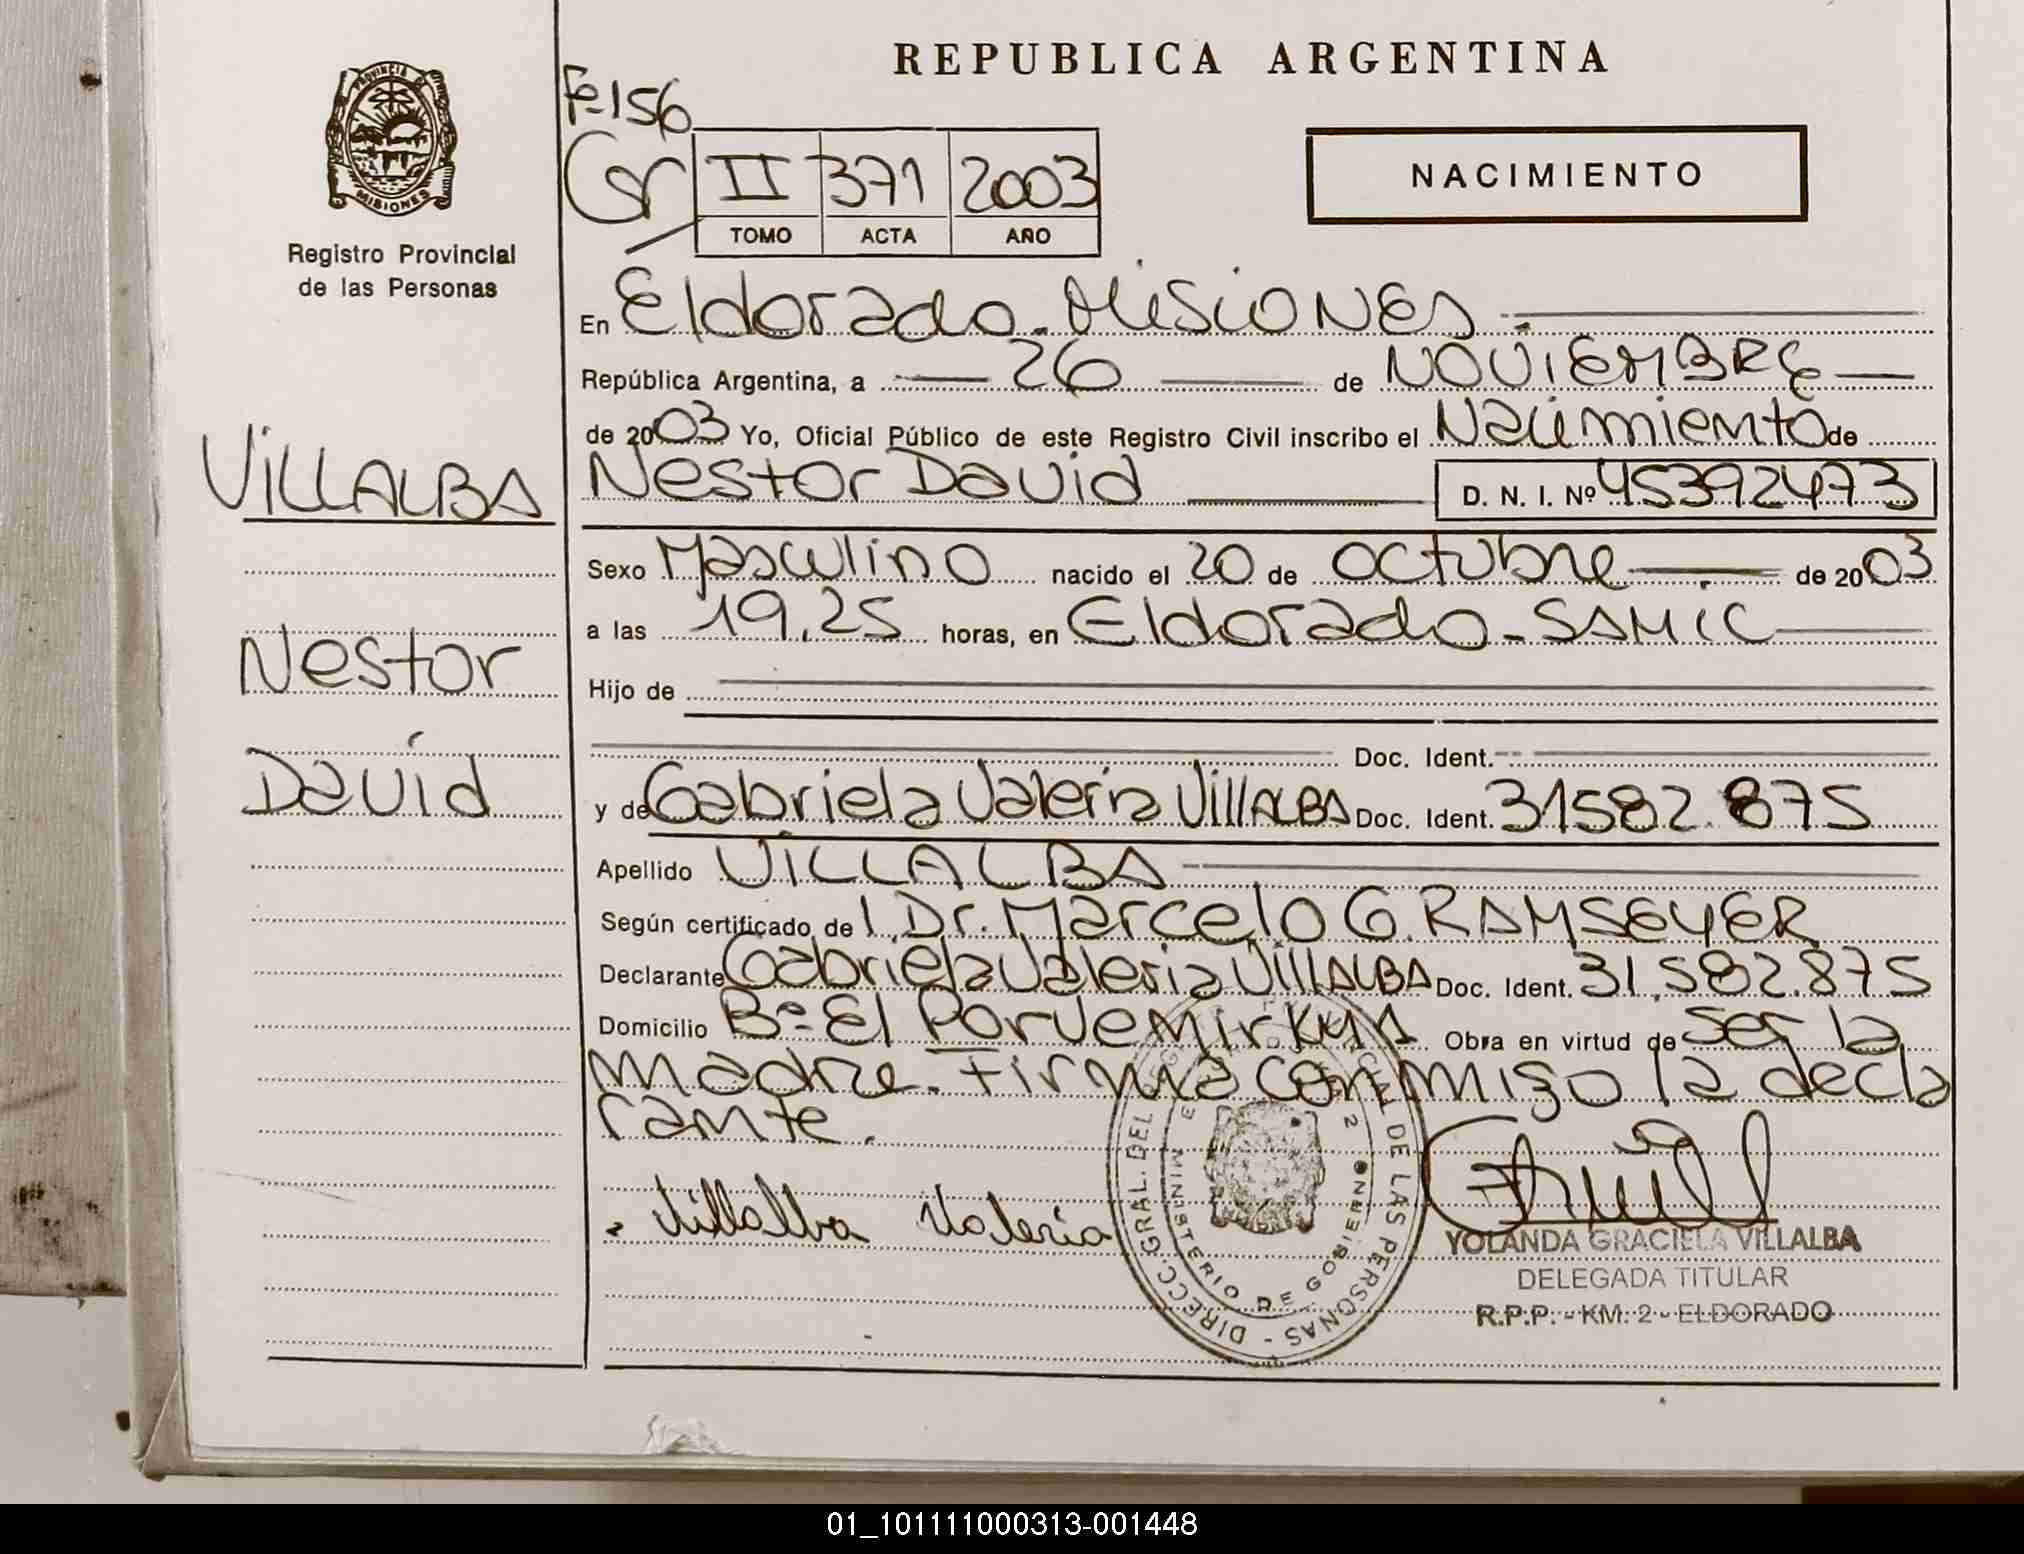 PROVINCIA DE
MISIONES
Registro Provincial
de las Personas
VILLALBA
Nestor
David
REPUBLICA ARGENTINA
NACIMIENTO
Fº156
Gr
II 371 2003
TOMO ACTA AÑO
En Eldorado. Misiones
República Argentina, a 26 de NOVIEMBRE
de 2003 Yo, Oficial Público de este Registro Civil inscribo el Nacimiento de
Nestor David D. N. I. Nº 45392473
Sexo Masculino nacido el 20 de octubre de 2003
a las 19,25 horas, en Eldorado - SAMIC
Hijo de
Doc. Ident.
y de Gabriela Valeria Villalba Doc. Ident. 31582.875
Apellido VILLALBA
Según certificado de l Dr. Marcelo G. RAMSEYER
Declarante Gabriela Valeria Villalba Doc. Ident. 31.582.875
Domicilio Bº El Porvenir Km 1 Obra en virtud de ser la
madre. Firma conmigo la decla
rante.
Villalba Valeria
DIRECC. GRAL. DEL REG. PROVINCIAL DE LAS PERSONAS
MINISTERIO DE GOBIERNO
YOLANDA GRACIELA VILLALBA
DELEGADA TITULAR
R.P.P. - KM. 2 - ELDORADO
01_101111000313-001448